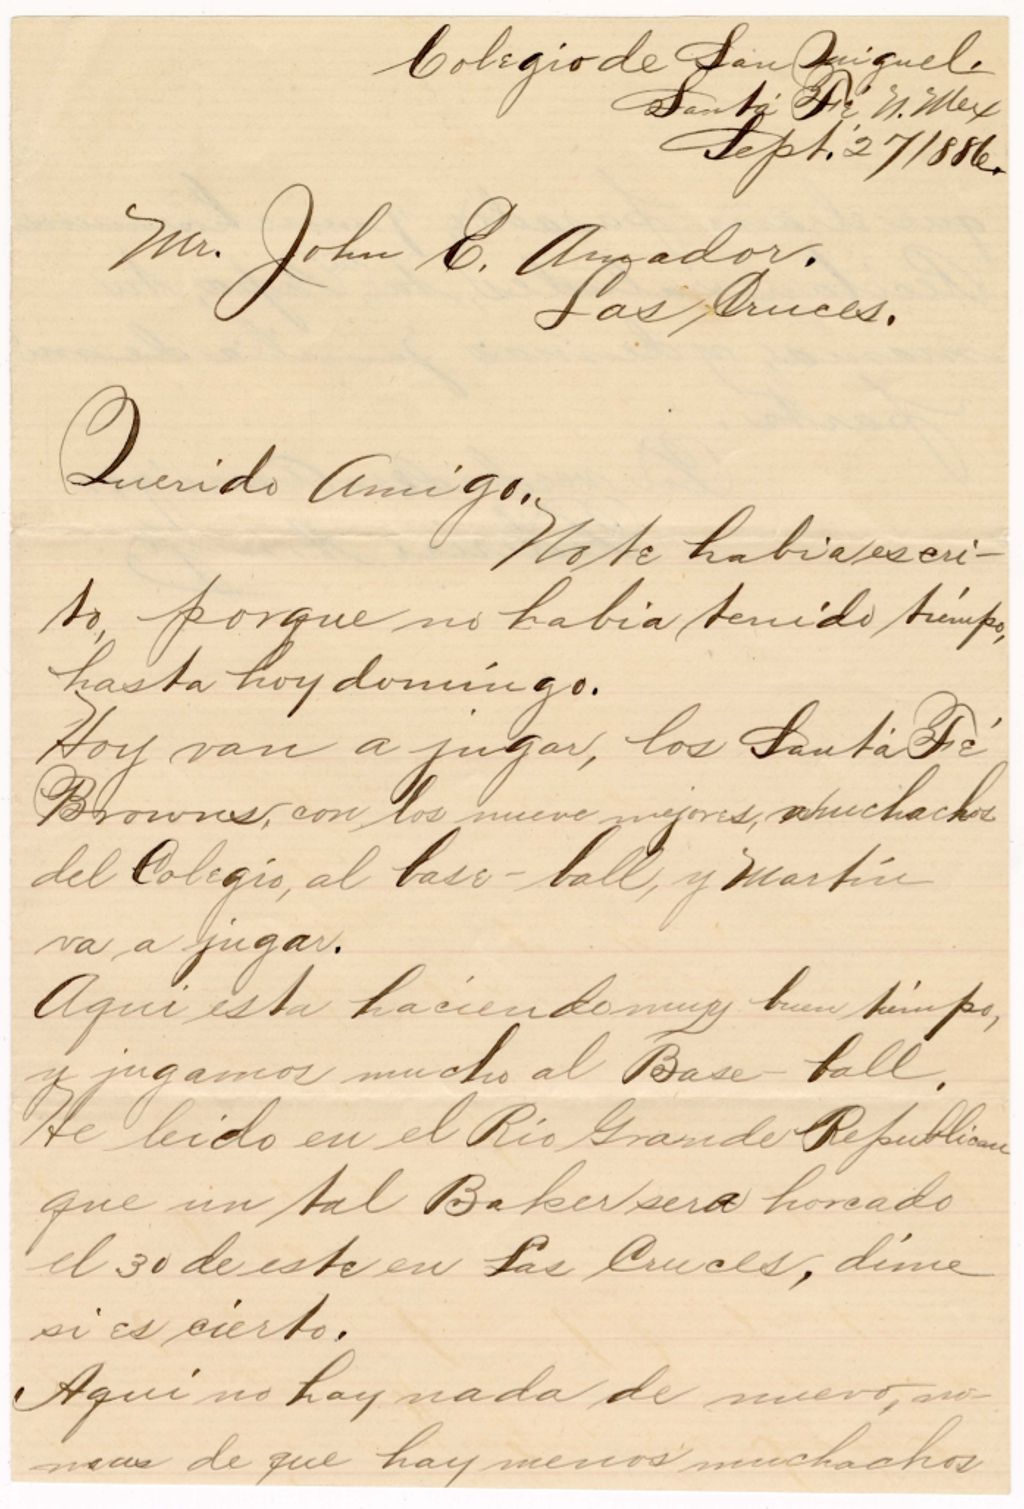 Colegio de San Miguel.
Santá Fé N. Mex
Sept. 27/1886.
Mr. John E. Amador.
Las Cruces.
Querido Amigo.
No te habia escri-
to, porque no habia tenido tiempo,
hasta hoy domingo.
Hoy van a jugar, los Santá Fé
Browns, con los nueve mejores, muchachos
del Colegio, al base-ball, y Martin
va a jugar.
Aqui esta haciendo muy buen tiempo,
y jugamos mucho al Base-ball.
He leido en el Rio Grande Republican
que un tal Baker sera horcado
el 30 de este en Las Cruces, dime
si es cierto.
Aqui no hay nada de nuevo, no-
mas de que hay menos muchachos